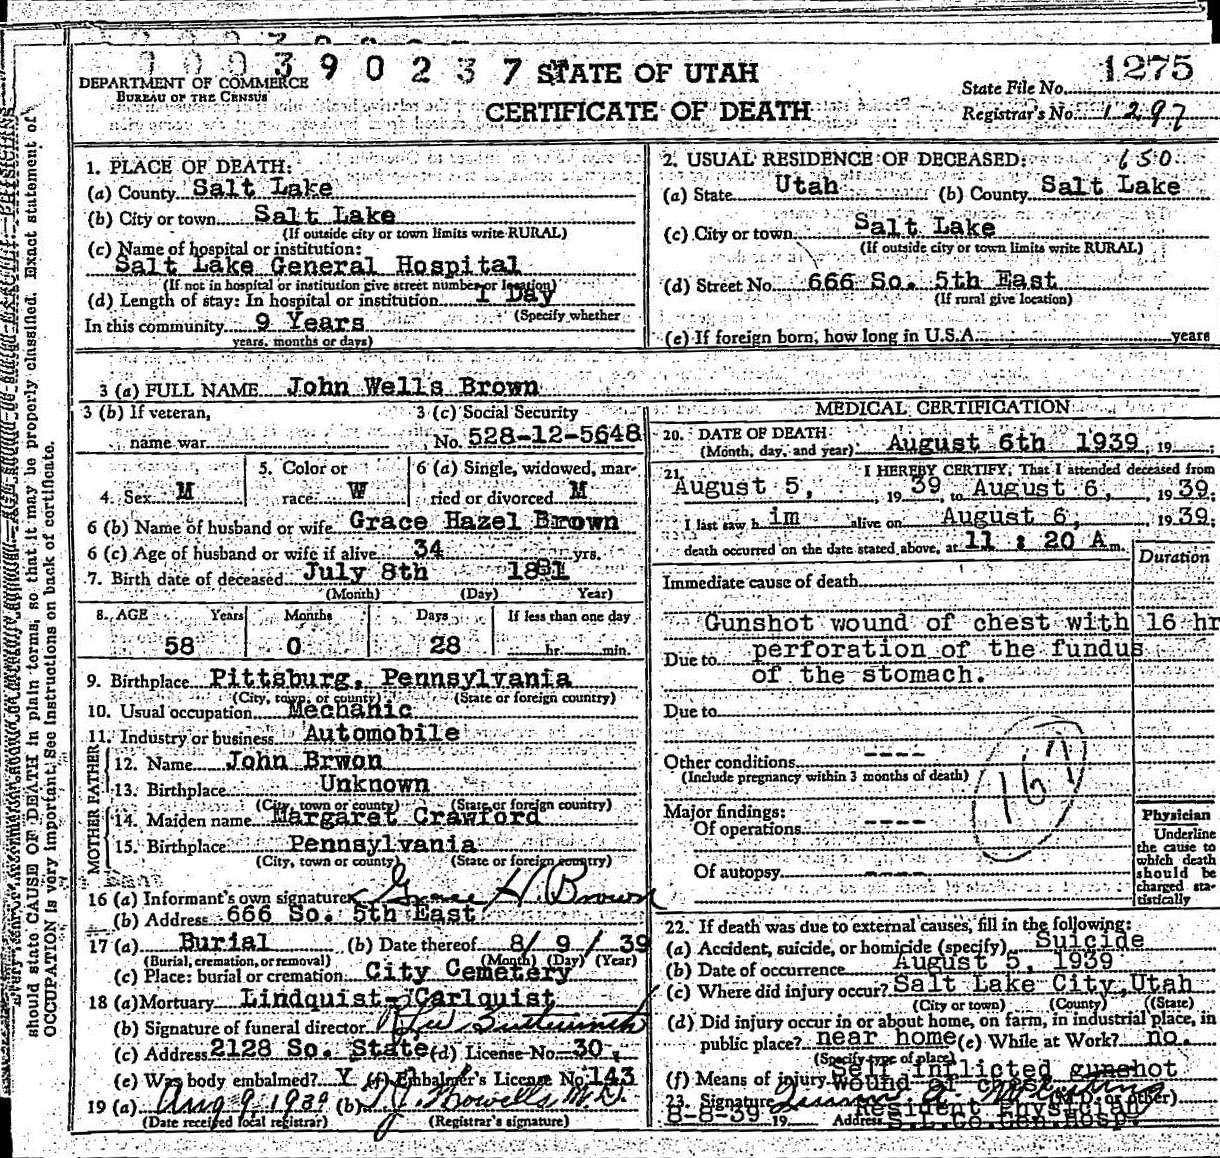 390237 STATE OF UTAH
DEPARTMENT OF COMMERCE
BUREAU OF THE CENSUS
CERTIFICATE OF DEATH
State File No. 1275
Registrar's No. 1297
1. PLACE OF DEATH:
(a) County Salt Lake
(b) City or town Salt Lake
(If outside city or town limits write RURAL)
(c) Name of hospital or institution:
Salt Lake General Hospital
(If not in hospital or institution give street number or location)
(d) Length of stay: In hospital or institution 1 Day
(Specify whether
In this community 9 Years
years, months or days)
2. USUAL RESIDENCE OF DECEASED: 650
(a) State Utah (b) County Salt Lake
(c) City or town Salt Lake
(If outside city or town limits write RURAL)
(d) Street No. 666 So. 5th East
(If rural give location)
(e) If foreign born, how long in U.S.A. years
3 (a) FULL NAME John Wells Brown
3 (b) If veteran,
name war
3 (c) Social Security
No. 528-12-5648
4. Sex M
5. Color or
race W
6 (a) Single, widowed, mar-
ried or divorced M
6 (b) Name of husband or wife Grace Hazel Brown
6 (c) Age of husband or wife if alive 34 yrs.
7. Birth date of deceased July 8th 1881
(Month) (Day) Year)
8. AGE Years Months Days If less than one day
58 0 28 hr. min.
9. Birthplace Pittsburg, Pennsylvania
(City, town, or county) (State or foreign country)
10. Usual occupation Mechanic
11. Industry or business Automobile
FATHER
12. Name John Brwon
13. Birthplace Unknown
(City, town or county) (State or foreign country)
MOTHER
14. Maiden name Margaret Crawford
15. Birthplace Pennsylvania
(City, town or county) (State or foreign country)
16 (a) Informant's own signature Grace H. Brown
(b) Address 666 So. 5th East
17 (a) Burial (b) Date thereof 8/ 9 / 39
(Burial, cremation, or removal) (Month) (Day) (Year)
(c) Place: burial or cremation City Cemetery
18 (a) Mortuary Lindquist-Carlquist
(b) Signature of funeral director
(c) Address 2128 So. State (d) License No. 30
(e) Was body embalmed? Y (f) Embalmer's License No. 143
19 (a) Aug 9, 1939 (b) Howells M.D.
(Date received local registrar) (Registrar's signature)
MEDICAL CERTIFICATION
20. DATE OF DEATH:
(Month, day, and year) August 6th 1939, 19
21. I HEREBY CERTIFY, That I attended deceased from
August 5, 19 39, to August 6, 19 39;
I last saw h im alive on August 6, 19 39;
death occurred on the date stated above, at 11 : 20 A m.
Duration
Immediate cause of death
Gunshot wound of chest with 16 hr
Due to perforation of the fundus
of the stomach.
Due to
Other conditions ----
(Include pregnancy within 3 months of death)
167
Major findings:
Of operations ----
Of autopsy ----
Physician
Underline
the cause to
which death
should be
charged sta-
tistically
22. If death was due to external causes, fill in the following:
(a) Accident, suicide, or homicide (specify) Suicide
(b) Date of occurrence August 5, 1939
(c) Where did injury occur? Salt Lake City, Utah
(City or town) (County) (State)
(d) Did injury occur in or about home, on farm, in industrial place, in
public place? near home (e) While at Work? no.
(Specify type of place)
(f) Means of injury Self inflicted gunshot
wound of chest
23. Signature (M.D. or other)
8-8-39 19 Resident Physician
Address S.L.Co.Gen.Hosp.
should state CAUSE OF DEATH in plain terms, so that it may be properly classified. Exact statement of
OCCUPATION is very important. See Instructions on back of certificate.